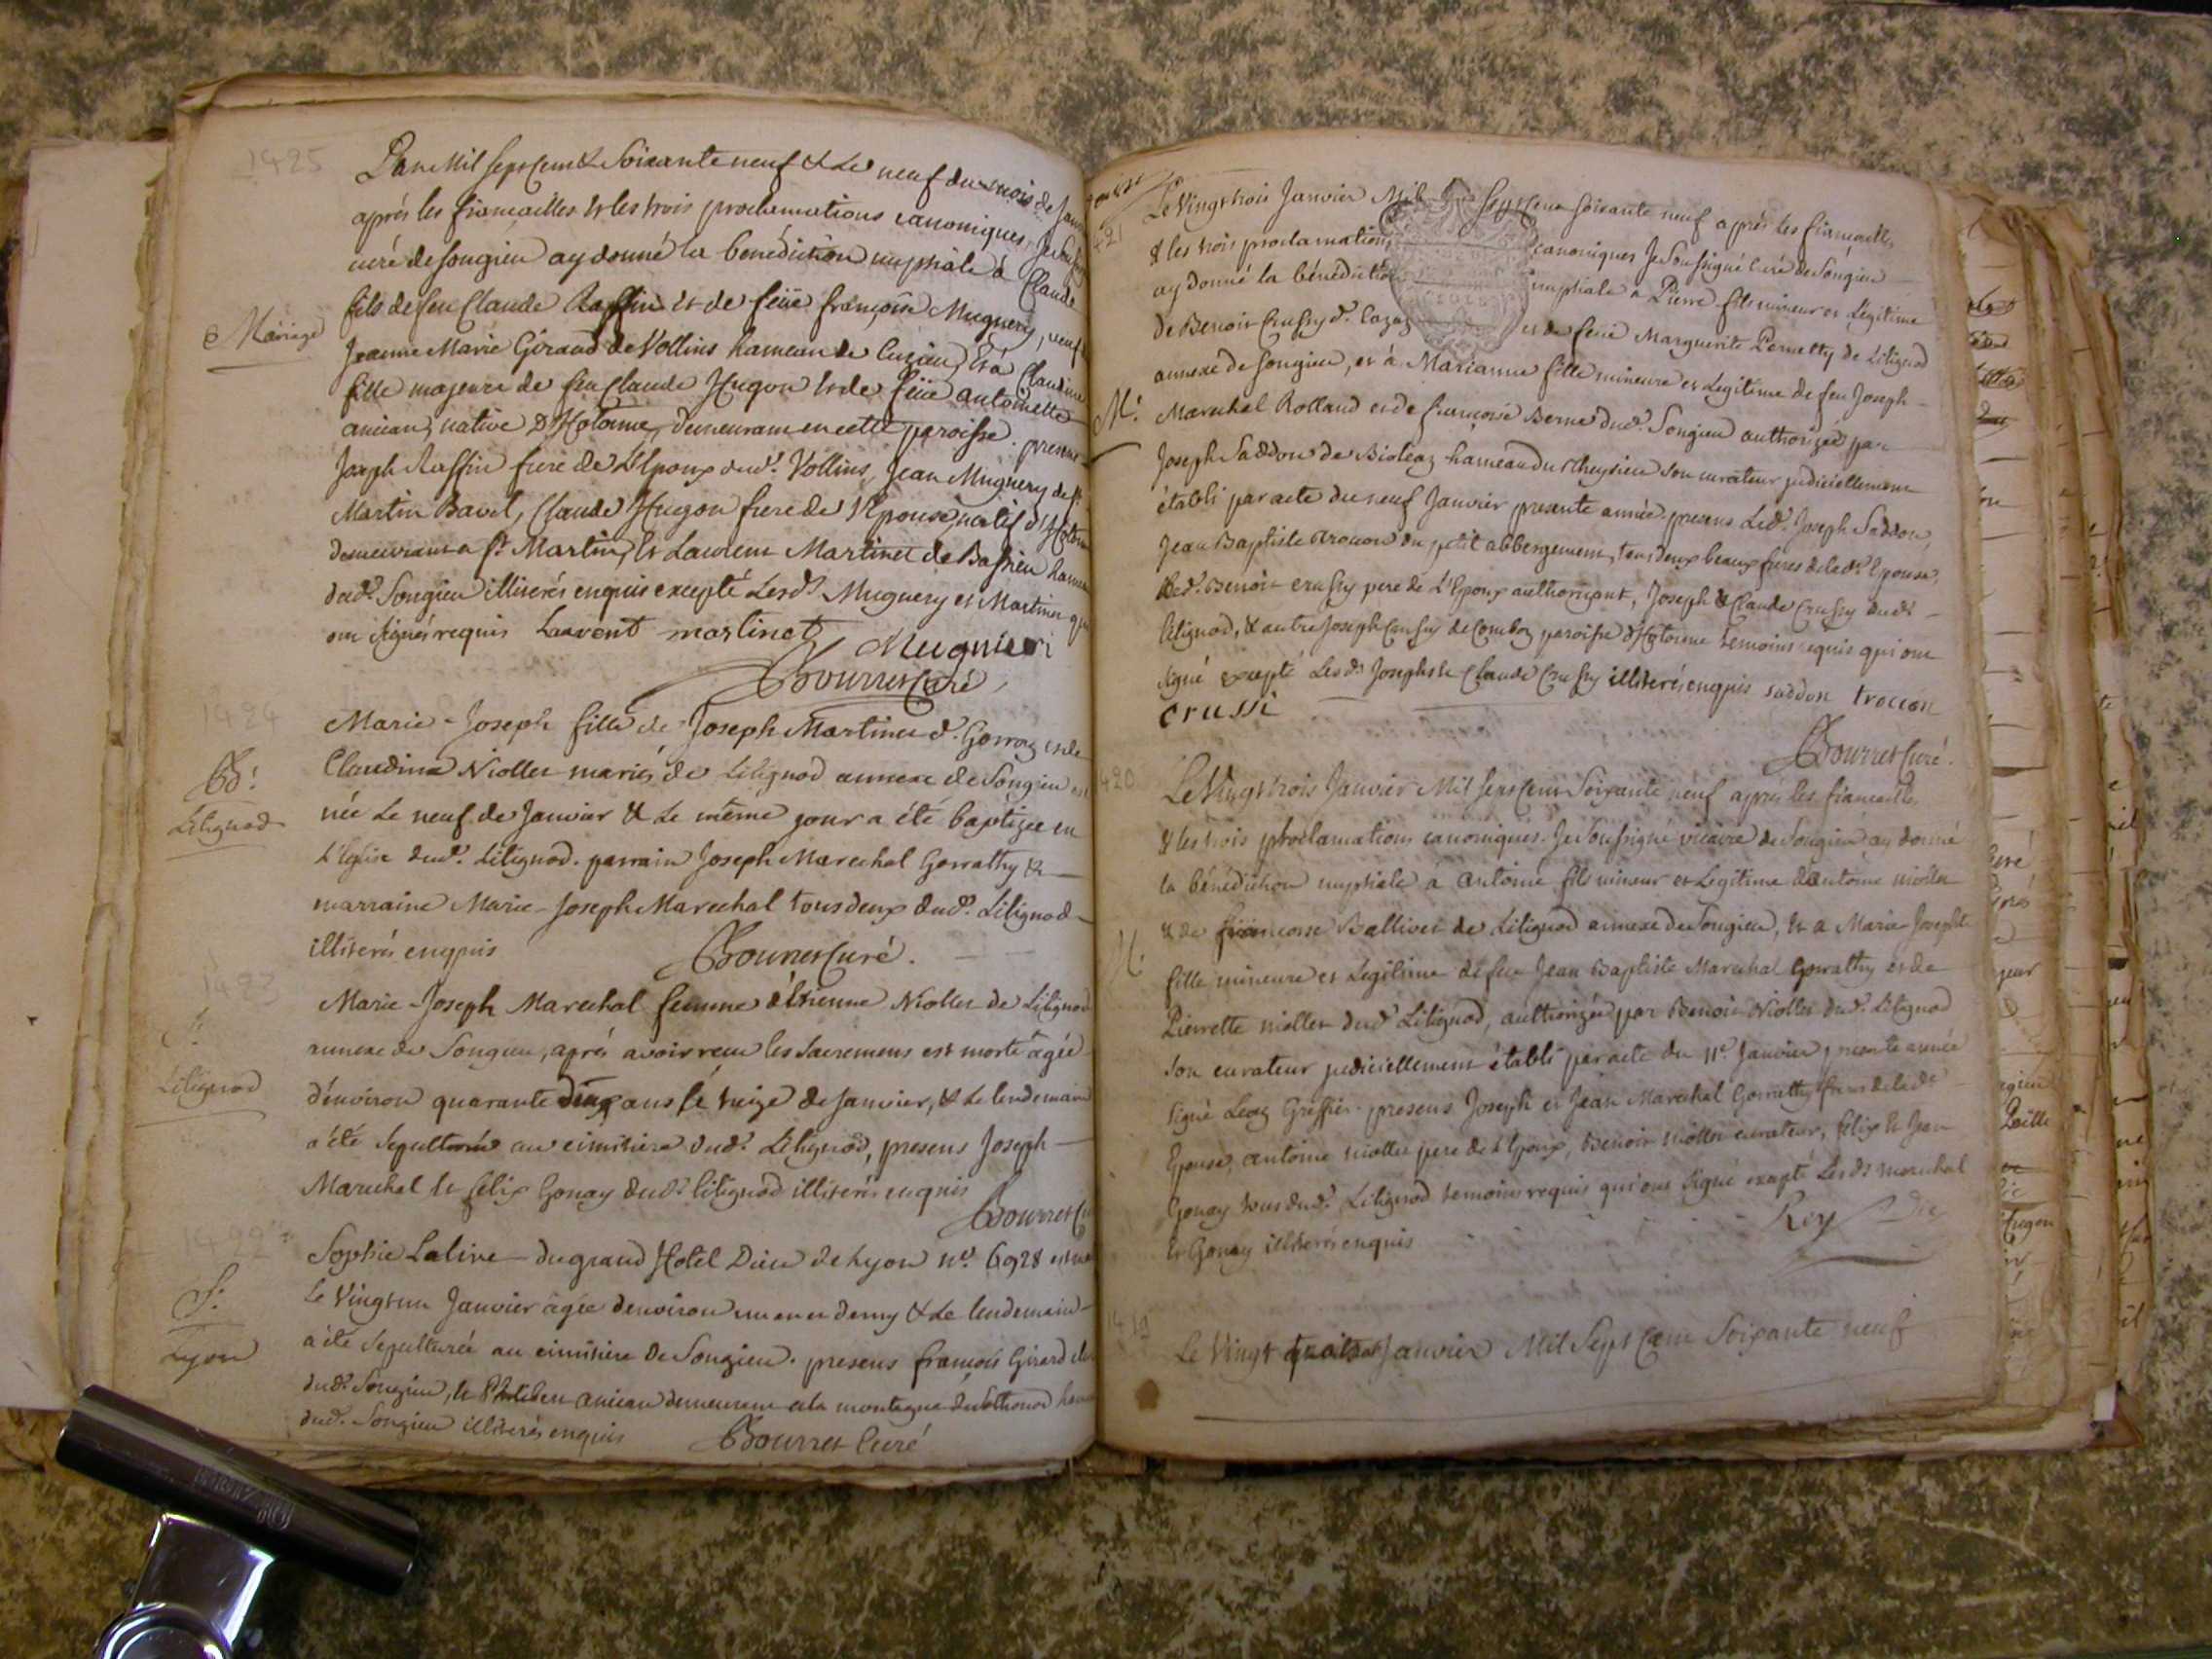 1425
L'an Mil sept Cent & Soixante neuf & Le neuf du mois de Janv
aprés les fiancailles & les trois proclamations canoniques, Je sous
curé de songieu ay donné la benediction nuptiale à Claude
fils de feu Claude Raffin & de feüe françoise Muguery, veuf
Mariage
Jeanne Marie Giraud de Vollins hameau de luzieu, & à Claudine
fille majeure de feu Claude Hugon & de feüe antoinette
ancian, native d'Hotonne, demeurant en cette paroisse. presens
Joseph Raffin frere de L'Epoux dud. Vollins, Jean Muguery de St
Martin Bavel, Claude Hugon frere de l'Epouse, natif d'Hoton
demeurant a St Martin, & Laurent Martinet de Bassieu ham
dud. Songieu illiterés enquis excepté Lesd. Muguery et Martinet qui
ont signés requis Laurent martinet
Mugnieri
Bourret Curé
1424
Marie-Joseph fille de Joseph Martinet d. Gorraz & de
B.
Lilignod
Claudine Niollet mariés de Lilignod annexe de Songieu est
née Le neuf de Janvier & Le même jour a été baptizée en
L'Eglise dud. Lilignod. parrain Joseph Marechal Gorrathy &
marraine Marie-Joseph Marechal tous deux dud. Lilignod
illiterés enquis Bourret Curé.
1423
Marie-Joseph Marechal femme d'étienne Niollet de Lilignod
S.
Lilignod
annexe de Songieu, aprés avoir recu les sacremens est morte agée
d'environ quarante deux ans le treize de Janvier, & Le lendemain
a été sepulturée au cimitiere dud. Lilignod, presens Joseph
Marechal & felix Gonay dud. lilignod illiterés enquis
Bourret Cu
1422
Sophie Lalive du grand Hotel Dieu de Lyon n.o 6928 est
S.
Lyon
Le Vingt un Janvier agée d'environ un an et demy & Le lendemain
a été sepulturée au cimitiere de Songieu. presens françois Girard
dud. Songieu, & Philibert ancian demeurant a la montagne de Sothonod ham
dud. Songieu illiterés enquis Bourret Curé
421
Le Vingt trois Janvier Mil Sept Cent soixante neuf aprés les fiancailles
& les trois proclamations canoniques Je Soussigné Curé de Songieu
ay donné la bénédiction nuptiale a Pierre fils mineur et Legitime
de Benoit Crussy d. Cazaz et de feüe Marguerite Pernetty de Lilignod
annexe de songieu, et à Marianne fille mineure et Legitime de feu Joseph
M.
Marechal Rolland et de françoise Berne dud. Songieu authorizée par
Joseph Saddon de Bioleaz hameau du Cheysieu son curateur judiciellement
établi par acte du neuf Janvier presente année. presens Led. Joseph Saddon,
Jean Baptiste trocon du petit abbergement, tous deux beaux freres de lad. Epouse,
Led. Benoit crussy pere de L'Epoux authorisant, Joseph & Claude Crussy dud.
lilignod, & autre Joseph Crussy de Comboz paroisse d'Hotonne temoins requis qui ont
signé excepté Lesd. Josephs & Claude Crussy illiterés enquis saddon trocon
crussi
Bourret Curé.
420
Le Vingt trois Janvier Mil Sept Cent Soixante neuf aprés les fiancailles
& les trois proclamations canoniques. Je Soussigné vicaire de Songieu ay donné
la bénédiction nuptiale à antoine fils mineur et Legitime d'antoine niollet
M.
& de francoise Ballivet de Lilignod annexe de Songieu, & a Marie Josephte
fille mineure et Legitime de feu Jean Baptiste Marechal Gorrathy et de
Pierrette niollet dud. Lilignod, authorizée par Benoit Niollet dud. Lilignod
son curateur judiciellement établi par acte du 11e. Janvier presente année
signé Leaz Greffier. presens Joseph et Jean Marechal Gorrathy freres de lad.
Epouse, antoine niollet pere de L'Epoux, Benoit niollet curateur, felix & Jean
Gonay tous dud. Lilignod temoins requis qui ont signé excepté Lesd. marechal
& Gonay illiterés enquis Rey
1419
Le Vingt quatre Janvier Mil Sept Cent Soixante neuf